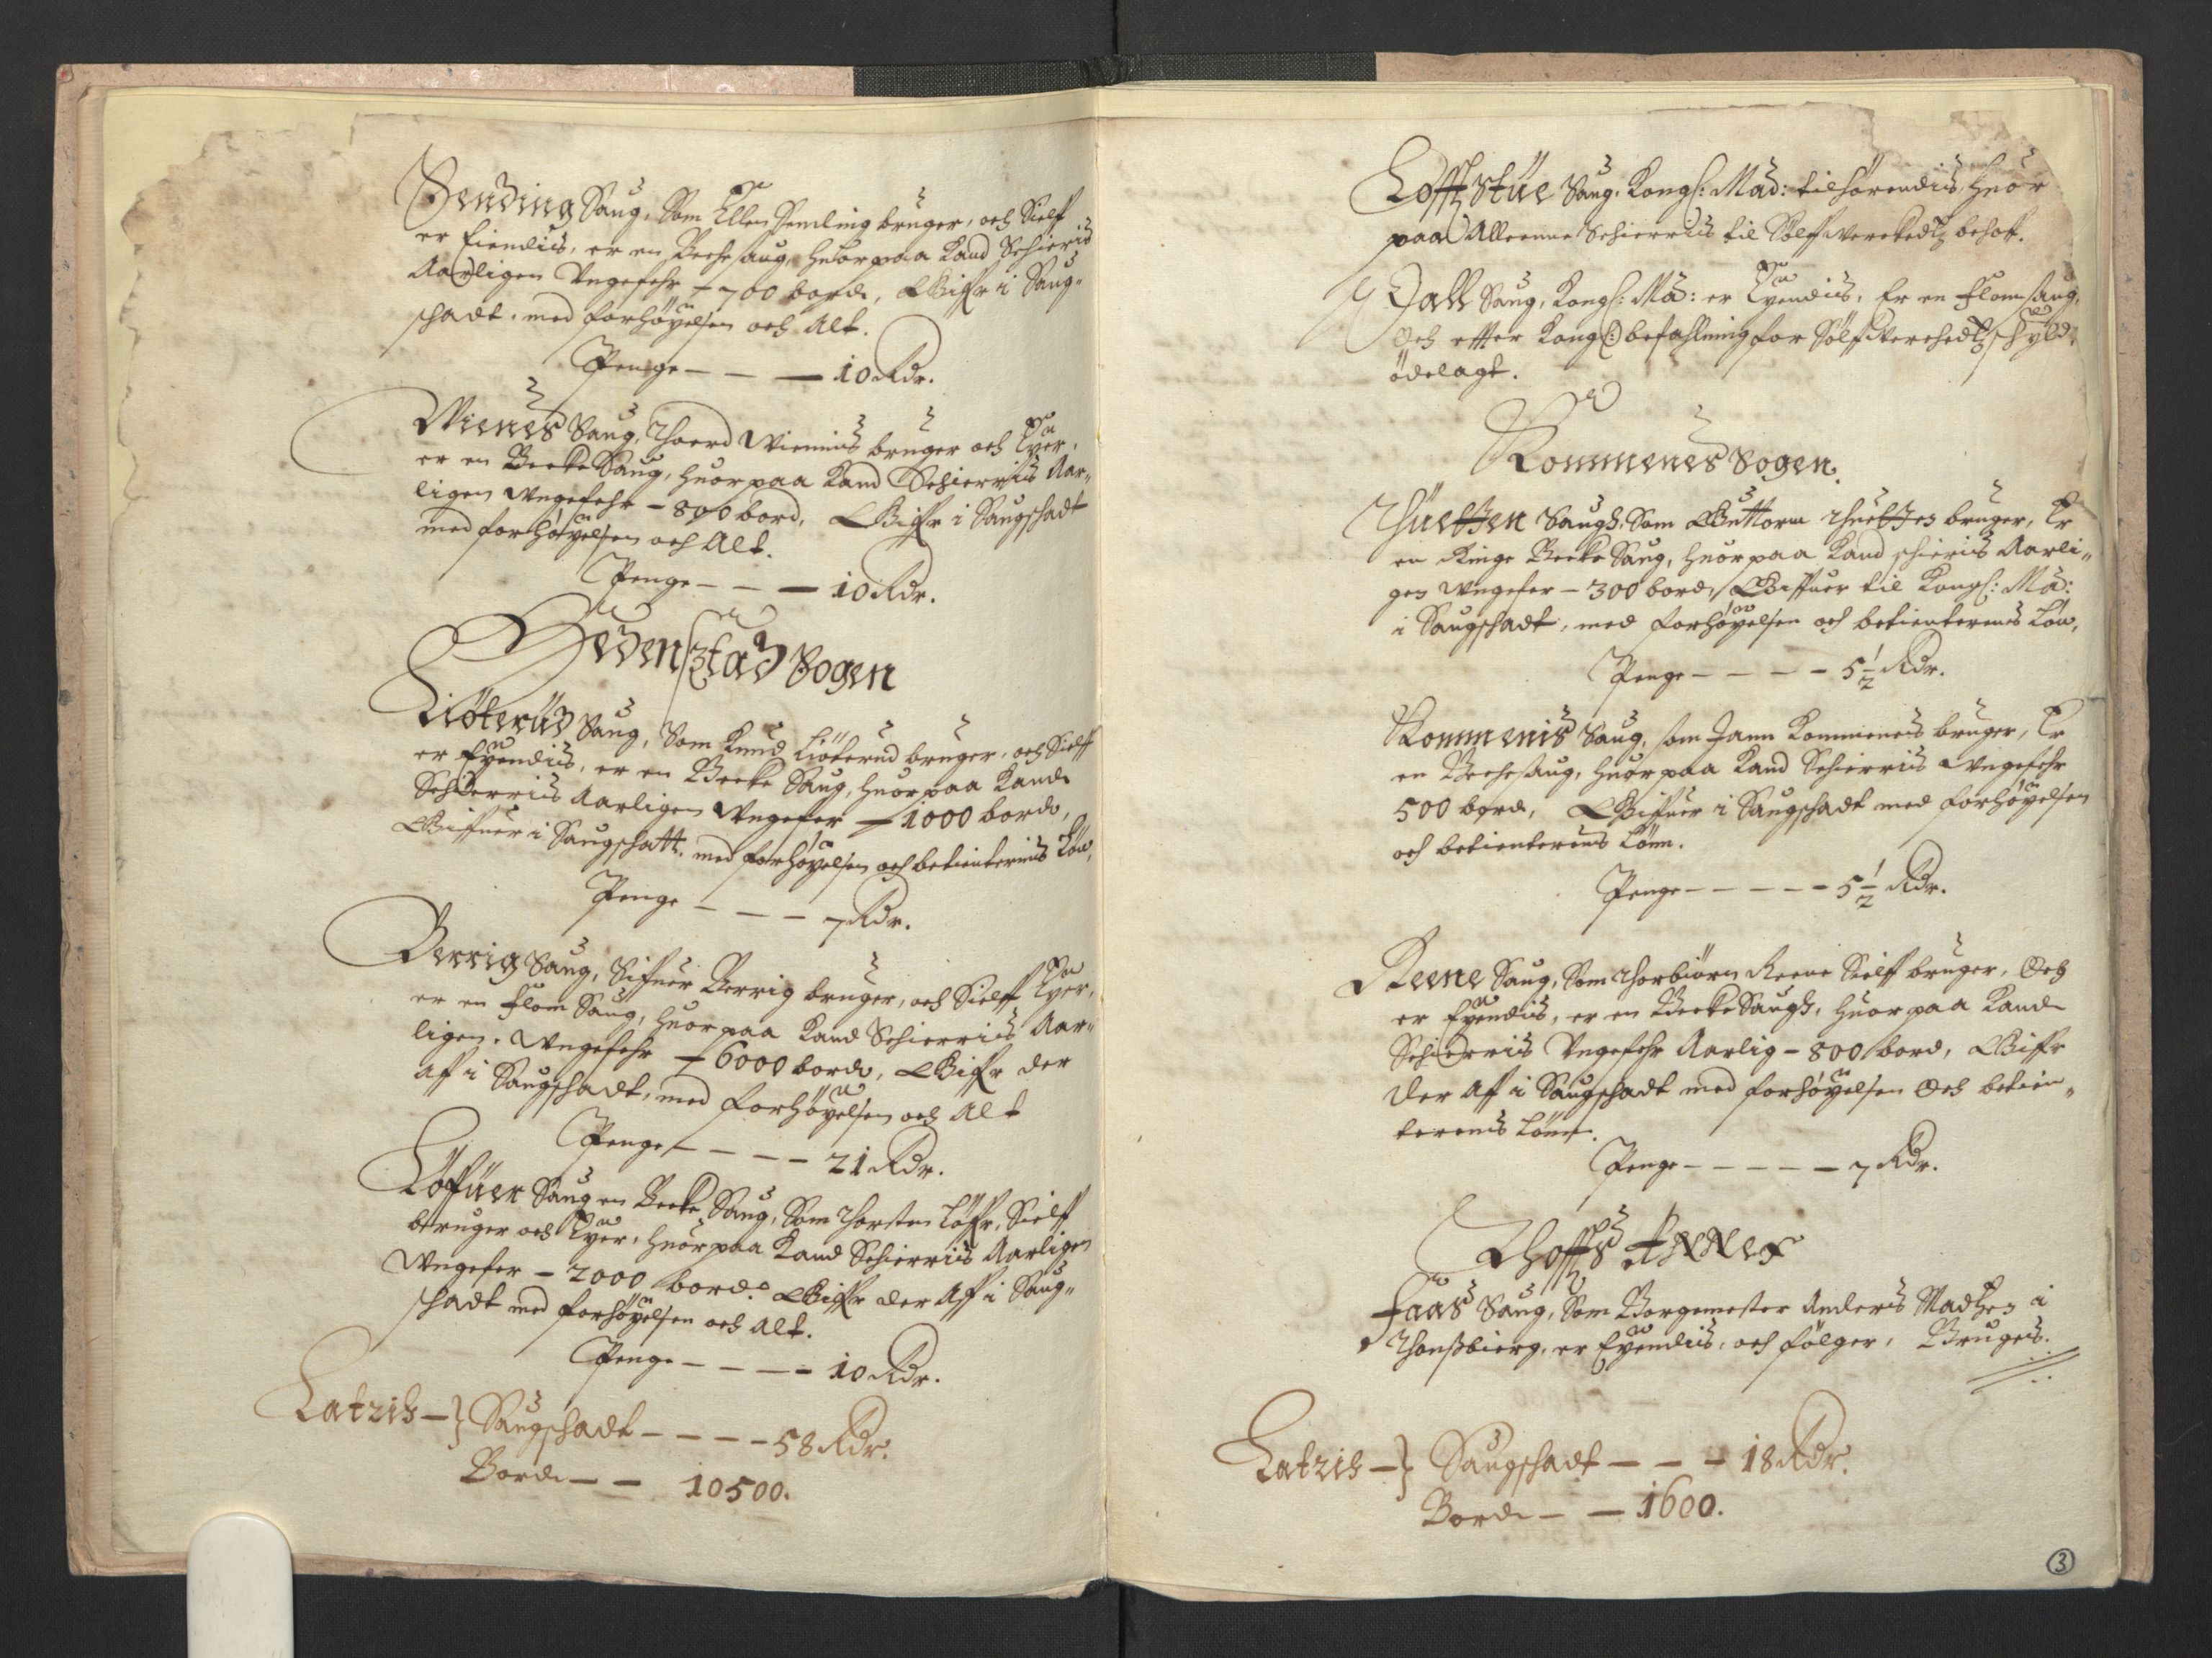 Sending Saug, Som Ellen Semding bruger, och Sielff
er Eiendis, er en Beche saug, huor paa Kand Schieris
Aarligen Ungefehr – 700 bord, Giffr i Saug-
schadt, med forhøyelsen och Alt.
Penge – – – 10 Rdr.
Wienes Saug, Thoerd Wiennis bruger och Eyer,
er en Becke Saug, huor paa Kand Schierris Aar-
ligen Ungefehr – 800 bord, Giffr i Saugschadt
med forhøyelsen och Alt.
Penge – – – 10 Rdr.
Hedenstad Sogen
Liøterud Saug, Som Knud Liøterud bruger, och Sielff
er Eyendis, er en Becke Saug, huor paa Kand
Schierris Aarligen Ungefer – 1000 bord,
Giffuer i Saugschatt, med forhøyelsen och betienternis Løn,
Penge – – – 7 Rdr.
Berrig Saug, Siffuer Berrig bruger, och Sielff Eyer,
er en Flom Saug, huor paa Kand Schierris Aar-
ligen, Ungefehr – 6000 bord, Giffr der
Aff i Saugschadt, med forhøyelsen och Alt
Penge – – – – 21 Rdr.
Løfuer Saug en Becke Saug, Som Thorsten Løffr, Sielff
bruger och Eyer, huor paa Kand Schierris Aarligen
Ungefer – 2000 bord. Giffr der Aff i Saug-
schadt med forhøyelsen och Alt.
Penge – – – – 10 Rdr.
Latris – } Saugschadt – – – – 58 Rdr.
Bord – – 10500.
Lofftz Stue Saug, Kongl: Mad: tilhørendis, huor
paa Alleenne Schierris til Sølff werckedtz behoff.
Dall Saug, Kongl: Ma: er Eyendis, Er en Flom saug,
Och effter Kongl: befahlning for Sølfwerchedtz schyld
ødelagt.
Kommenes Sogen.
Thuetten Saugh, Som Guttorm Thuetten bruger, Er
en Ringe Becke Saug, huor paa Kand schieris Aarli-
gen Ungefer – 300 bord, Giffuer til Kongl: Ma:
i Saugschadt, med forhøyelsen och betienternes Løn,
Penge – – – – 5 1/2 Rdr.
Kommenis Saug, som Jann Kommenes bruger, Er
en Beche saug, huor paa Kand Schierris Ungefehr
500 bord, Giffuer i Saugschadt med forhøyelsen
och betienternes Lønn.
Penge – – – – – 5 1/2 Rdr.
Reene Saug, Som Thorbiørn Reene Sielff bruger, Och
er Eyendis, er en Becke Saugh, huor paa Kand
Schierris Ungefehr Aarlig – 800 bord, Giffr
der Aff i Saugschadt med forhøyelsen Och betien-
ternis Lønn.
Penge – – – – – 7 Rdr.
Annex
Faas Saug, Som Borgemester Anders Madtzen i
Thonsbierg, er Eyendis, och følger, Bruges.
Latris – } Saugschadt – – – 18 Rdr.
Bord – – 1600.
3